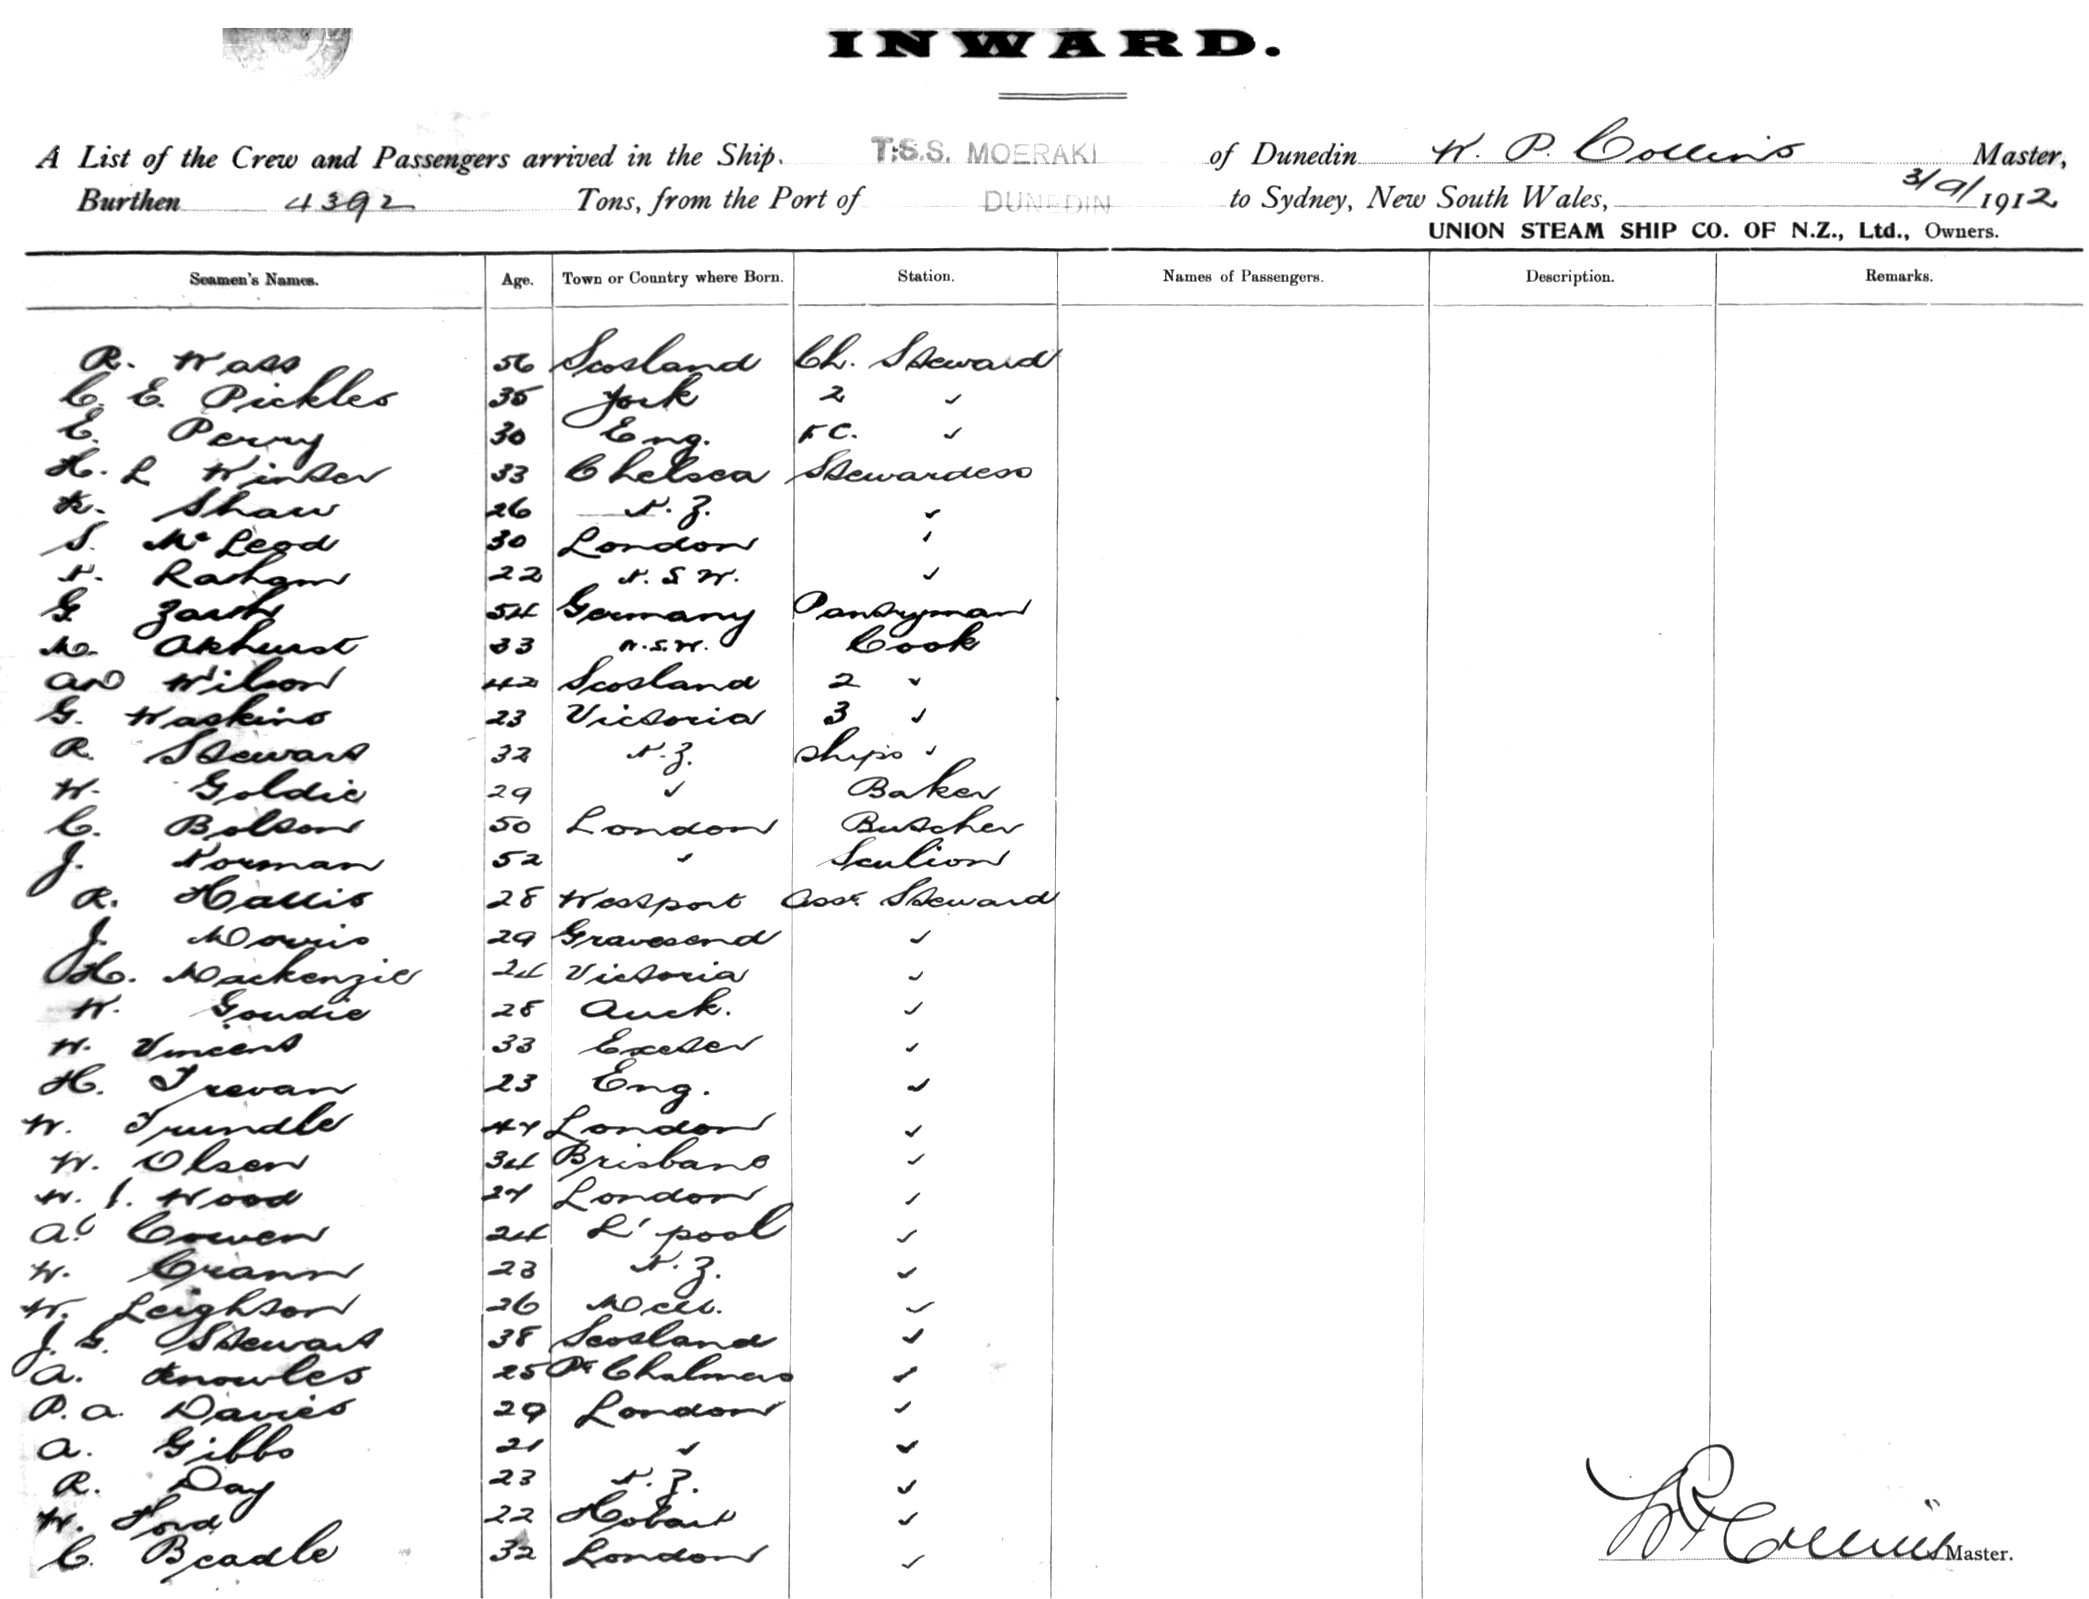 INWARD.
A List of the Crew and Passengers arrived in the Ship. T.S.S. MOERAKI of Dunedin W. P. Collins Master,
Burthen 4392 Tons, from the Port of DUNEDIN to Sydney, New South Wales, 3/9/1912
UNION STEAM SHIP CO. OF N.Z., Ltd., Owners.
Seamen's Names. Age. Town or Country where Born. Station. Names of Passengers. Description. Remarks.
R. Wass 56 Scotland Ch. Steward
C. E. Pickles 35 York 2 ✓
E. Perry 30 Eng. F.C. ✓
H. L Winter 33 Chelsea Stewardess
K. Shaw 26 N.Z. ✓
S. McLeod 30 London ✓
N. 22 N.S.W. ✓
G. 54 Germany Pantryman
M. Akhurst 33 N.S.W. Cook
Wilson 42 Scotland 2 ✓
G. Watkins 23 Victoria 3 ✓
R. Stewart 32 N.Z. ships ✓
W. Goldie 29 ✓ Baker
C. Bolton 50 London Butcher
J. Norman 52 ✓ Sculion
R. Hallis 28 Westport Asst. Steward
J. Morris 29 Gravesend ✓
H. Mackenzie 24 Victoria ✓
W. Goudie 28 Auck. ✓
W. Vincent 33 Exeter ✓
H. Trevan 23 Eng. ✓
W. Trundle 47 London ✓
W. Olsen 34 Brisbane ✓
W. J. Wood 27 London ✓
A. C Cowen 24 L'pool ✓
W. Crann 23 N.Z. ✓
W. Leighton 26 Melb. ✓
J. G. Stewart 38 Scotland ✓
A. Knowles 25 Pt Chalmers ✓
P. A. Davies 29 London ✓
A. Gibbs 21 ✓ ✓
R. Day 23 N.Z. ✓
W. Ford 22 Hobart ✓
C. Beadle 32 London ✓
W P Collins Master.